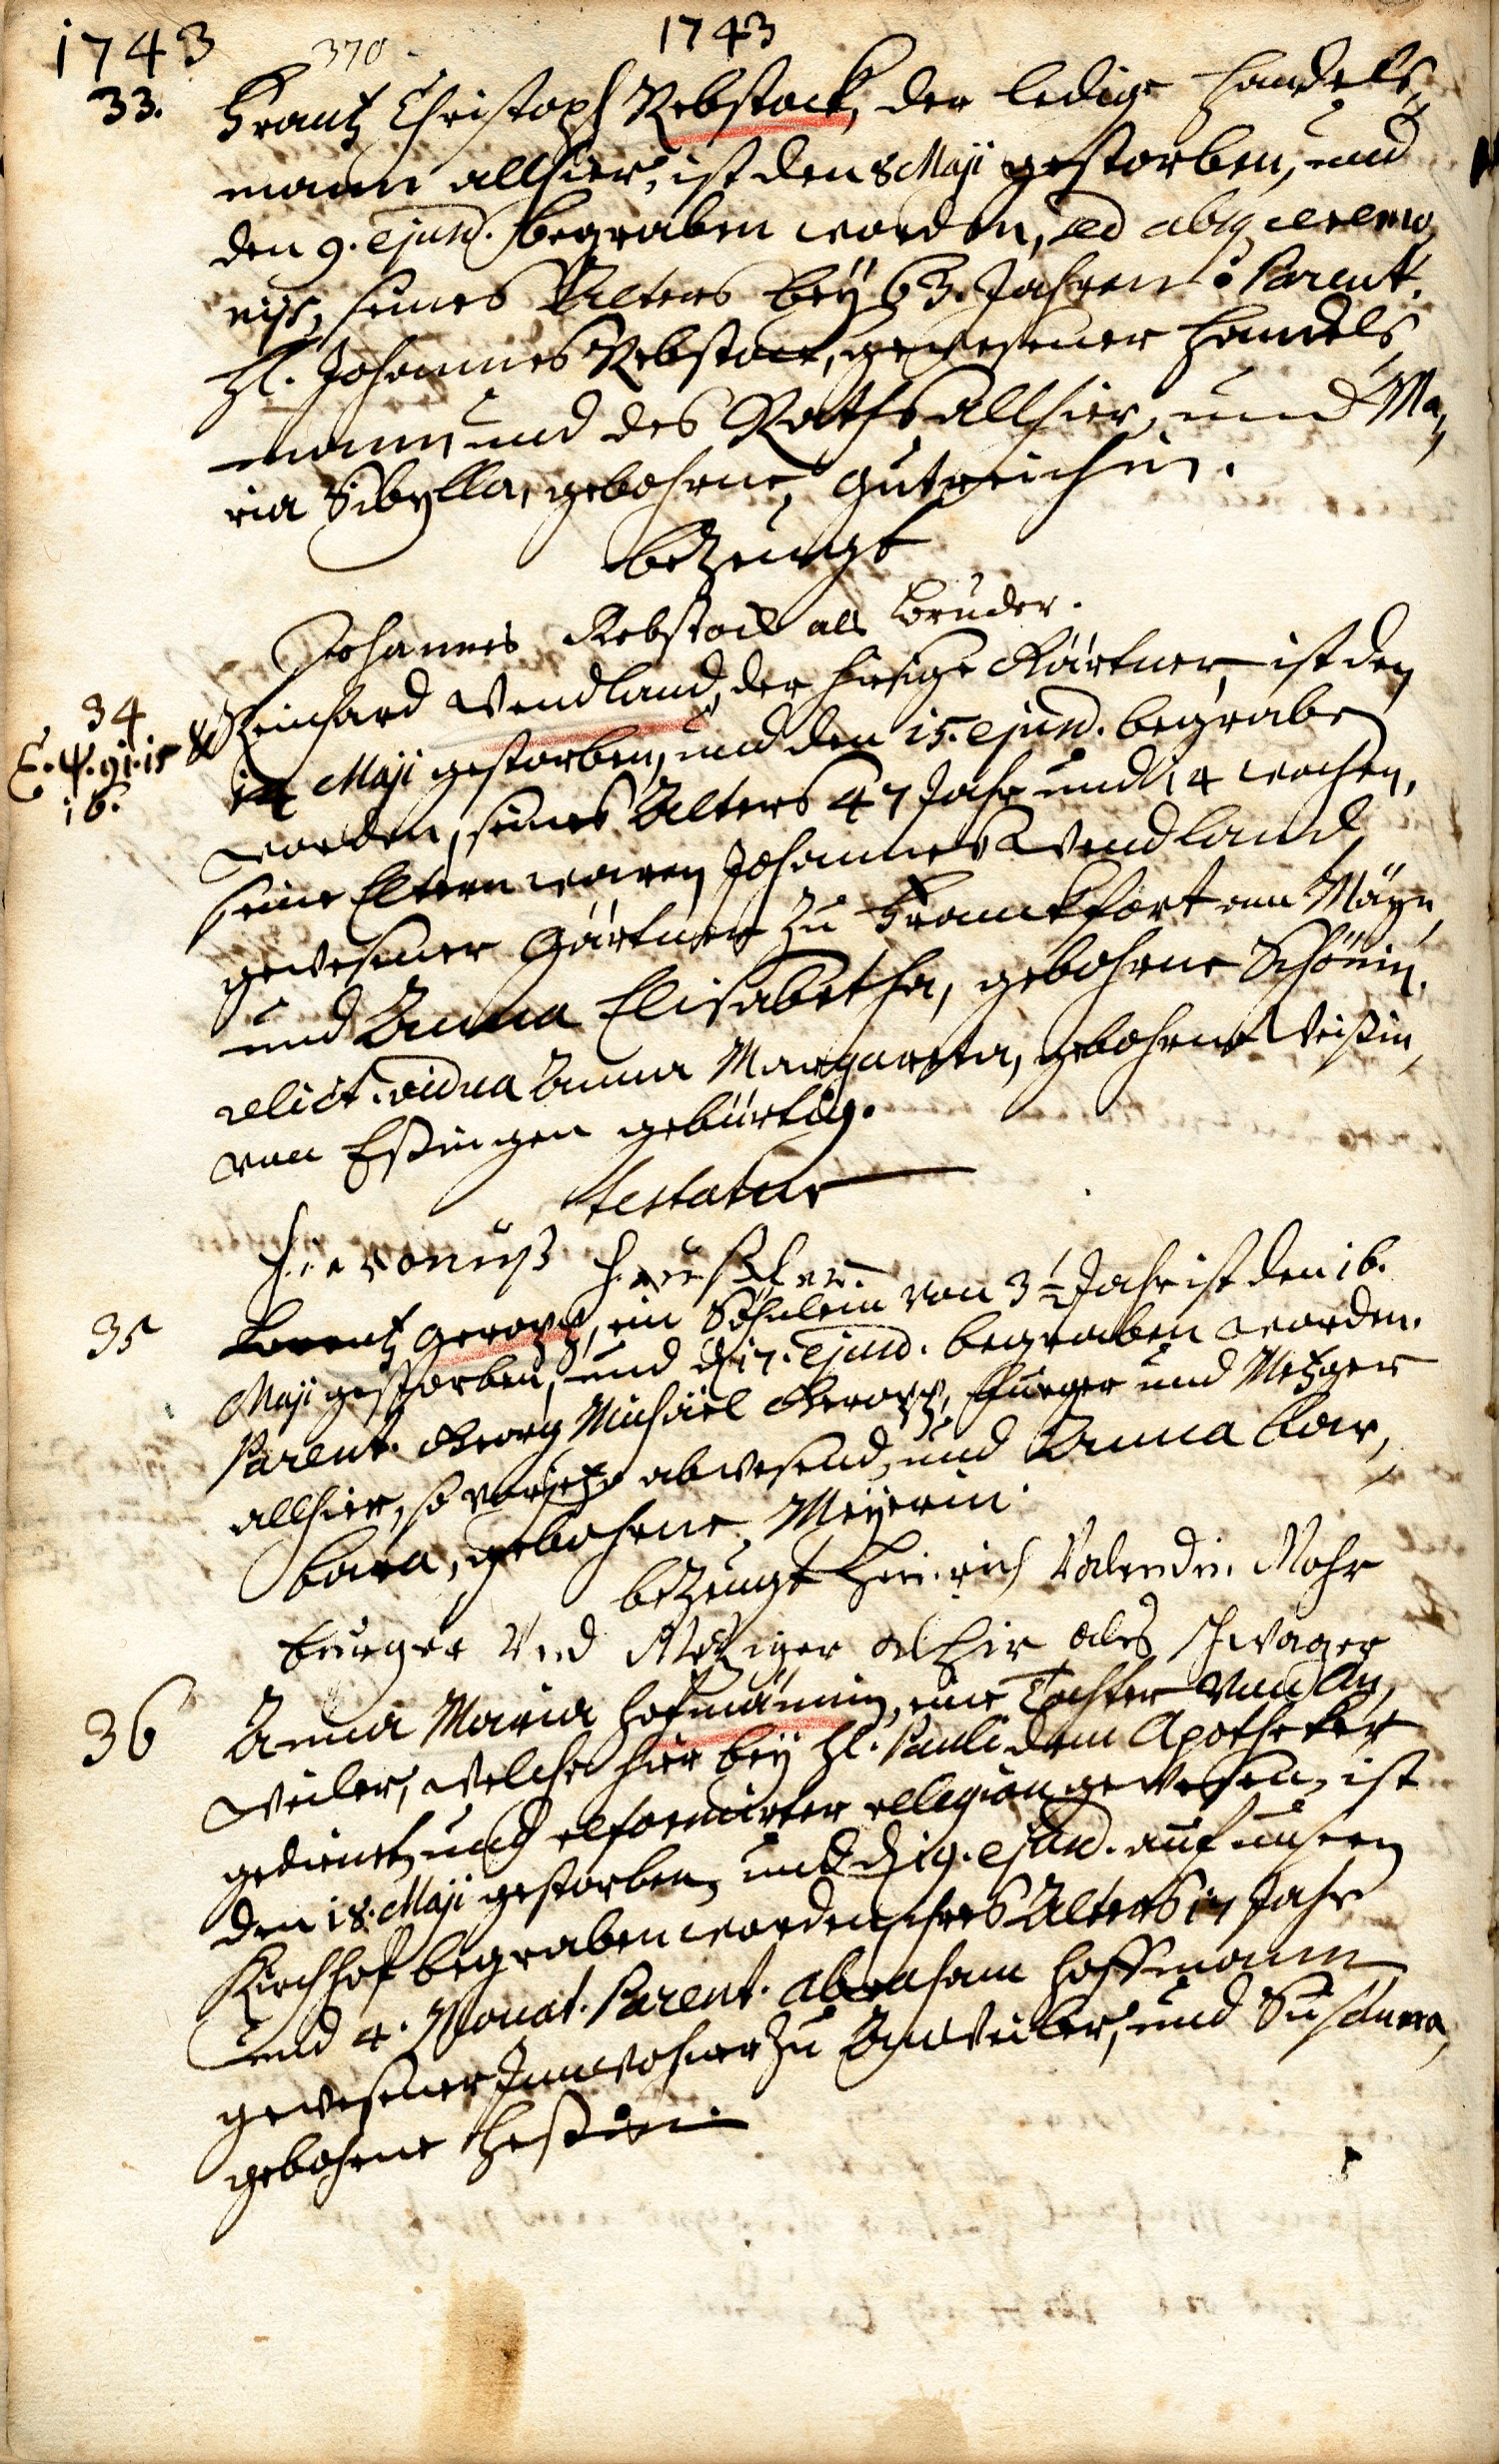 1743 370 1743
33. Frantz Christoph Rebstock, der ledige Handels,
mann allhier, ist den 8 Maji gestorben, und
den 9. ejusd. begraben worden, sed absq ceremo,
niis, seines Alters bey 63. Jahren. Parent.
Hl. Johannes Rebstock, gewesener Handels,
mann und des Raths allhier, und Ma,
ria Sibylla, gebohrne, Gutreichin.
bezeugt
Johannes Rebstock als Bruder.
34 Reinhard Wendland, der hiesige Gärtner, ist den
Ψ. 91. 15 14 Maji gestorben, und den 15. ejusd. begraben
16. worden, seines Alters 47 Jahr und 14 wochen,
seine Eltern waren Johannes Wendland
gewesener Gärtner zu Franckfort am Mäyn,
und Anna Elisabetha, gebohrne Schönin,
relict. vidua Anna Margareta, gebohrne Weißin,
von Eßingen gebürtig.
testatur
35 Lorentz Geropp, ein Söhnlein von 3½ Jahr ist den 16.
Maji gestorben, und d 17. ejusd. begraben worden.
Parent. Georg Michäel Geropp, Burger und Metzger
allhier, so vorjetzo abwesend, und Anna Bar,
bara, gebohrne, Meyerin.
bezeugt Heinrich Valendin Mohr
burger Vnd Metziger alhir als schwager
36 Anna Maria Hofmännin, eine Tochter von An,
weiler, welche hier bey Hl. Pauli dem Apotheker
gedienet, und reformirter religion gewesen, ist
den 18. Maji gestorben, und d 19. ejusd. auf unsern
Kirchhof begraben worden, ihres Alters 17 Jahr
und 4. Monat. Parent. Abraham Hoffmann
gewesener Innwohner zu Anweiler, und Susanna,
gebohrne